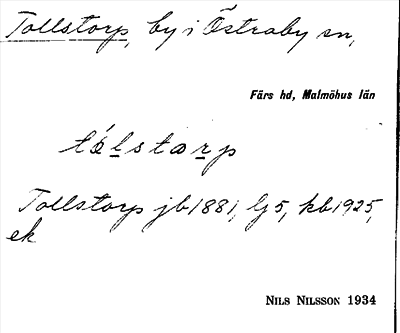 Tollstorp, by i Östraby sn,
Färs hd, Malmöhus län
tålstarp
Tollstorp jb 1881, lj 5, kb 1925,
ek
NILS NILSSON 1934